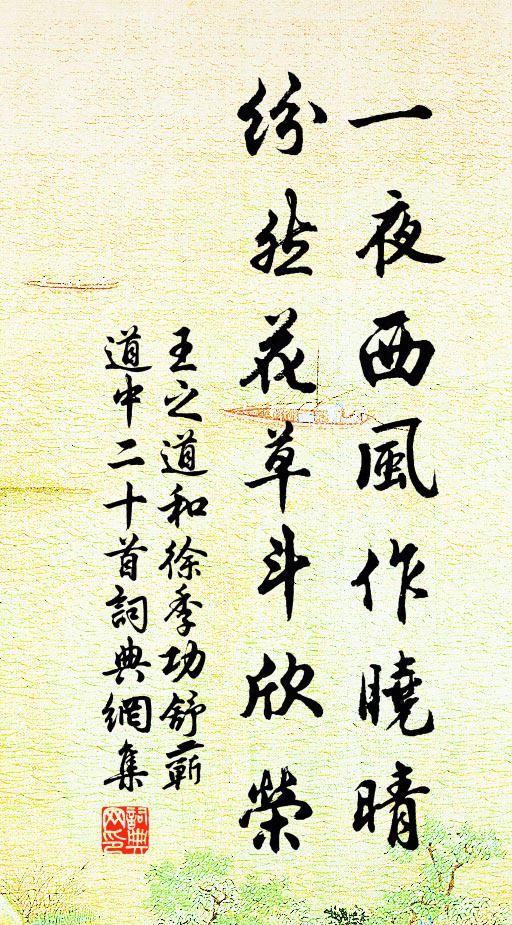 一夜西風作曉晴
紛然花草斗欣榮
王之道和徐季功舒蘄
道中二十首詞典網集
詞典網印